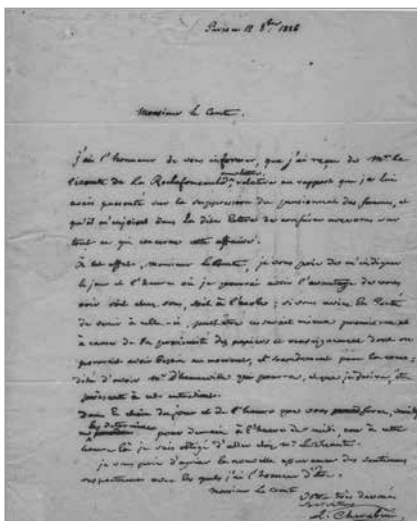 Paris ce 18 8bre 1826
Monsieur le Comte,
j'ai l'honneur de vous informer, que j'ai reçu de Mr le
Vicomte de la Rochefoucauld, une lettre, relative au rapport que je lui
avais présenté sur la suppression du pensionnat des femmes, et
qu'il m'enjoint dans la dite lettre de conférer avec vous sur
tout ce qui concerne cette affaire.
À cet effet, monsieur le Comte, je vous prie de m'indiquer
le jour et l'heure où je pourrai avoir l'avantage de vous
voir soit chez vous, soit à l'école; si vous aviez la bonté
de venir à celle-ci, peut être ce serait mieux premièrement
à cause de la proximité des papiers et renseignements dont on
pourrait avoir besoin au moment, et secondement pour la
d'avoir Mr d'Henneville qui pourra, et que je désire, être
présent à cet entretien.
Dans le choix du jour et de l'heure que vous
pour demain à l'heure de midi, car à cette
heure là je suis obligé d'aller chez Mr le Vicomte.
je vous prie d'agréer la nouvelle assurance des sentiments
respectueux avec les quels j'ai l'honneur d'être
monsieur le comte
Votre très dévoué
serviteur
L. Cherubini